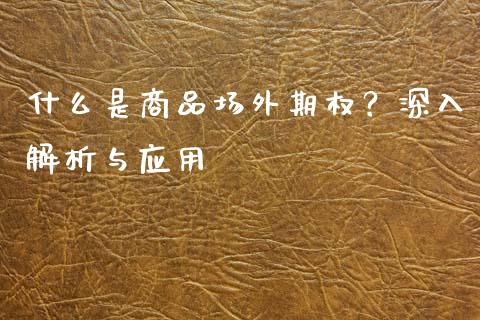 什么是商品场外期权？深入
解析与应用